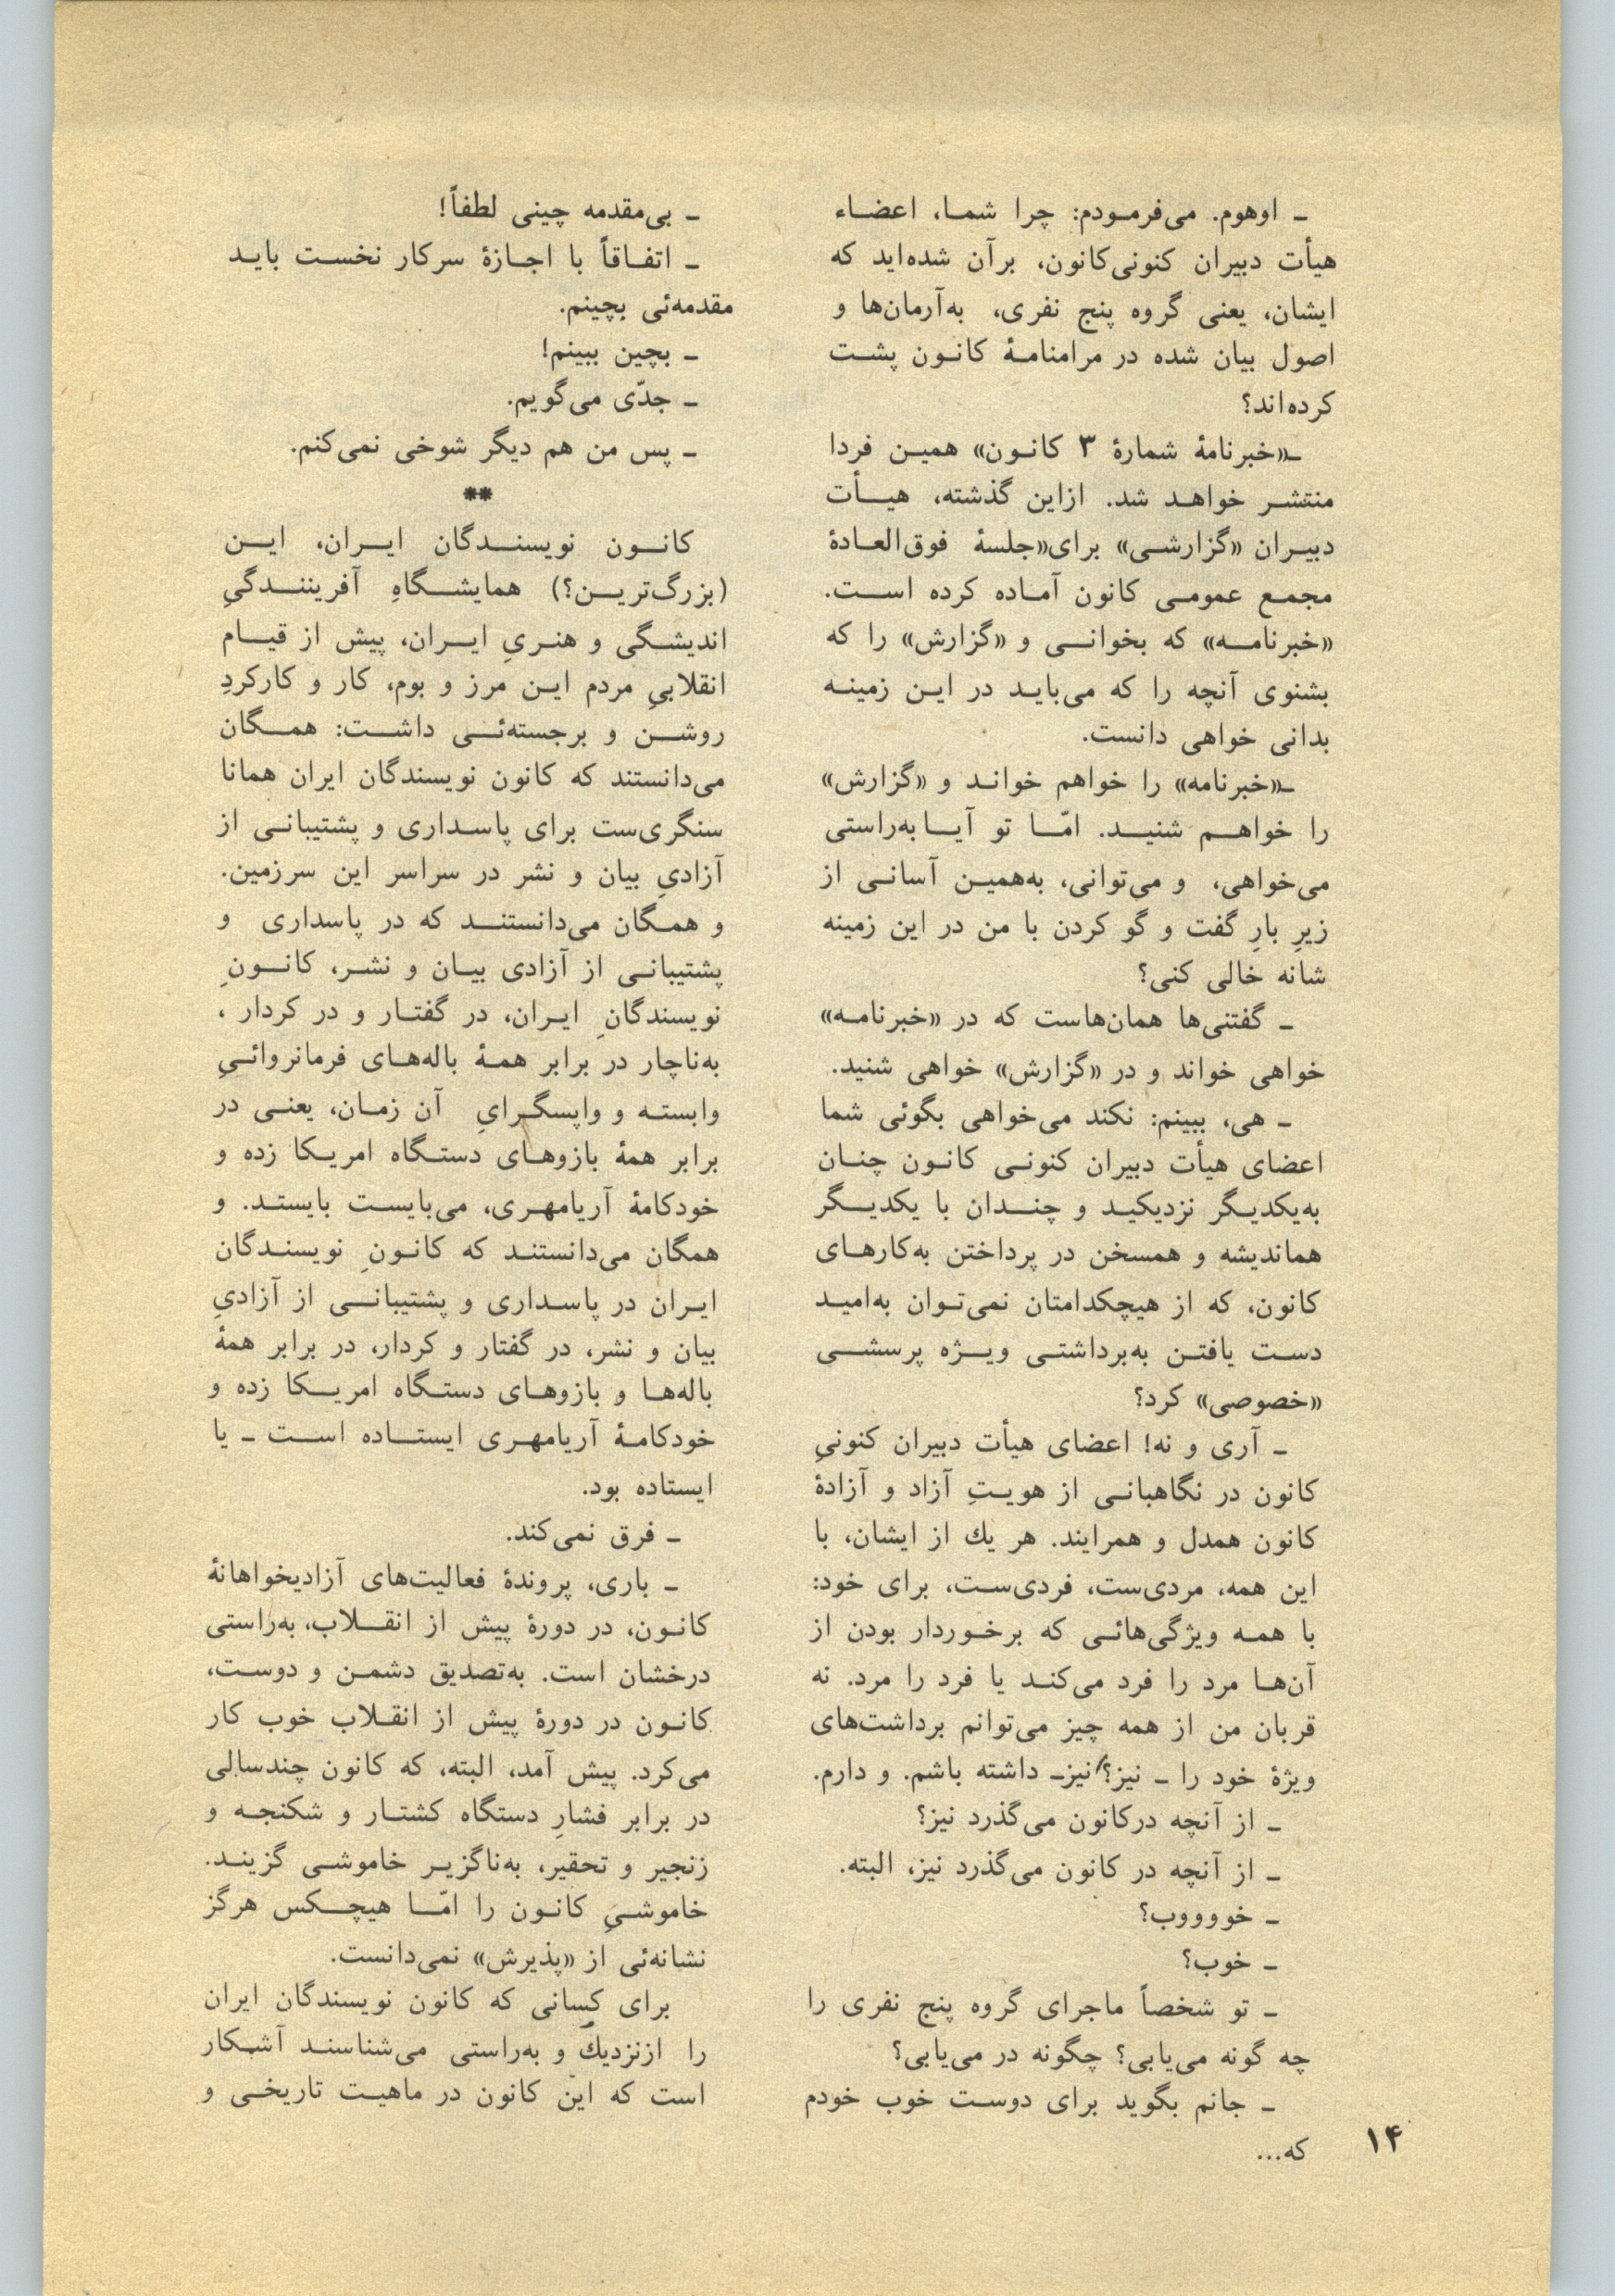 ـ اوهوم. می‌فرمودم: چرا شما، اعضاء
هیأت دبیران کنونی‌کانون، برآن شده‌اید که
ایشان، یعنی گروه پنج نفری، به‌آرمان‌ها و
اصول بیان شده در مرامنامهٔ کانون پشت
کرده‌اند؟
ـ«خبرنامهٔ شمارهٔ ۳ کانون» همین فردا
منتشر خواهد شد. ازاین گذشته، هیأت
دبیران «گزارشی» برای«جلسهٔ فوق‌العادهٔ
مجمع عمومی کانون آماده کرده است.
«خبرنامه» که بخوانی و «گزارش» را که
بشنوی آنچه را که می‌باید در این زمینه
بدانی خواهی دانست.
ـ«خبرنامه» را خواهم خواند و «گزارش»
را خواهم شنید. امّا تو آیا به‌راستی
می‌خواهی، و می‌توانی، به‌همین آسانی از
زیرِ بارِ گفت و گو کردن با من در این زمینه
شانه خالی کنی؟
ـ گفتنی‌ها همان‌هاست که در «خبرنامه»
خواهی خواند و در «گزارش» خواهی شنید.
ـ هی، ببینم: نکند می‌خواهی بگوئی شما
اعضای هیأت دبیران کنونی کانون چنان
به‌یکدیگر نزدیکید و چندان با یکدیگر
هماندیشه و همسخن در پرداختن به‌کارهای
کانون، که از هیچکدامتان نمی‌توان به‌امید
دست یافتن به‌برداشتی ویژه پرسشی
«خصوصی» کرد؟
ـ آری و نه! اعضای هیأت دبیران کنونیِ
کانون در نگاهبانی از هویتِ آزاد و آزادهٔ
کانون همدل و همرایند. هر یك از ایشان، با
این همه، مردی‌ست، فردی‌ست، برای خود:
با همه ویژگی‌هائی که برخوردار بودن از
آن‌ها مرد را فرد می‌کند یا فرد را مرد. نه
قربان من از همه چیز می‌توانم برداشت‌های
ویژهٔ خود را ـ نیز؟/نیزـ داشته باشم. و دارم.
ـ از آنچه درکانون می‌گذرد نیز؟
ـ از آنچه در کانون می‌گذرد نیز، البته.
ـ خوووب؟
ـ خوب؟
ـ تو شخصاً ماجرای گروه پنج نفری را
چه گونه می‌یابی؟ چگونه در می‌یابی؟
ـ جانم بگوید برای دوست خوب خودم
که...
ـ بی‌مقدمه چینی لطفاً!
ـ اتفاقاً با اجازهٔ سرکار نخست باید
مقدمه‌ئی بچینم.
ـ بچین ببینم!
ـ جدّی می‌گویم.
ـ پس من هم دیگر شوخی نمی‌کنم.
**
کانون نویسندگان ایران، این
(بزرگ‌ترین؟) همایشگاهِ آفرینندگیِ
اندیشگی و هنریِ ایران، پیش از قیام
انقلابیِ مردم این مرز و بوم، کار و کارکردِ
روشن و برجسته‌ئی داشت: همگان
می‌دانستند که کانون نویسندگان ایران همانا
سنگری‌ست برای پاسداری و پشتیبانی از
آزادیِ بیان و نشر در سراسر این سرزمین.
و همگان می‌دانستند که در پاسداری و
پشتیبانی از آزادی بیان و نشر، کانونِ
نویسندگانِ ایران، در گفتار و در کردار ،
به‌ناچار در برابر همهٔ باله‌های فرمانروائیِ
وابسته و واپسگرایِ آن زمان، یعنی در
برابر همهٔ بازوهای دستگاه امریکا زده و
خودکامهٔ آریامهری، می‌بایست بایستد. و
همگان می‌دانستند که کانونِ نویسندگان
ایران در پاسداری و پشتیبانی از آزادیِ
بیان و نشر، در گفتار و کردار، در برابر همهٔ
باله‌ها و بازوهای دستگاه امریکا زده و
خودکامهٔ آریامهری ایستاده است ـ یا
ایستاده بود.
ـ فرق نمی‌کند.
ـ باری، پروندهٔ فعالیت‌های آزادیخواهانهٔ
کانون، در دورهٔ پیش از انقلاب، به‌راستی
درخشان است. به‌تصدیق دشمن و دوست،
کانون در دورهٔ پیش از انقلاب خوب کار
می‌کرد. پیش آمد، البته، که کانون چندسالی
در برابر فشارِ دستگاه کشتار و شکنجه و
زنجیر و تحقیر، به‌ناگزیر خاموشی گزیند.
خاموشیِ کانون را امّا هیچکس هرگز
نشانه‌ئی از «پذیرش» نمی‌دانست.
برای کسانی که کانون نویسندگان ایران
را ازنزدیك و به‌راستی می‌شناسند آشکار
است که این کانون در ماهیت تاریخی و
۱۴